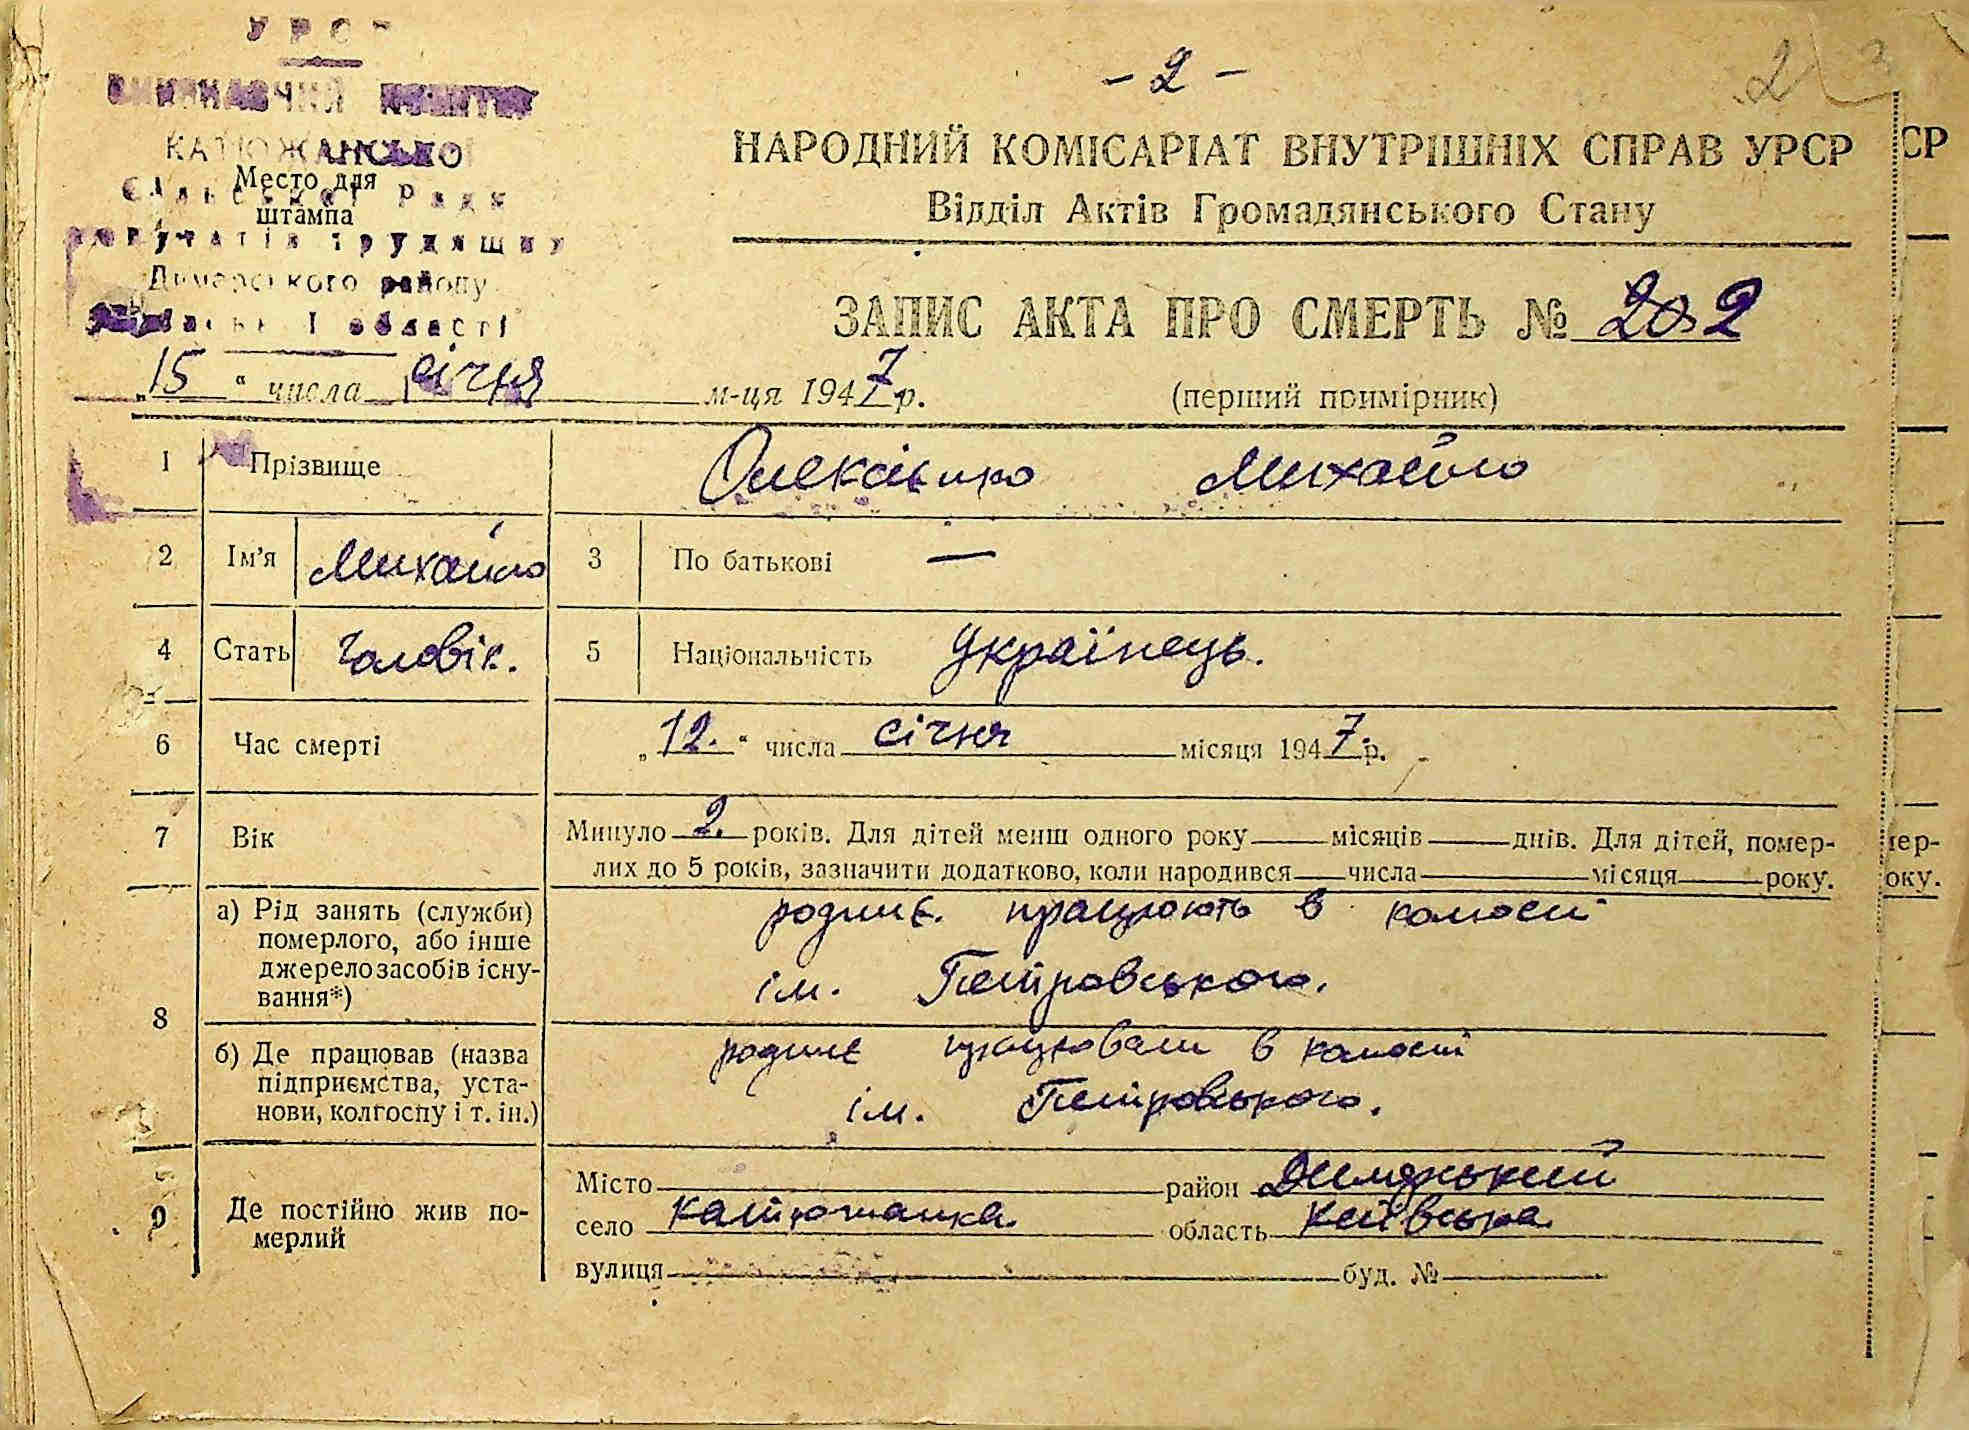 УРСР
ВИКОНАВЧИЙ КОМІТЕТ
- 2 -
КАТЮЖАНСЬКО
Место для
штампа
Сільської Ради
депутатів трудящих
Димерського району
області
НАРОДНИЙ КОМІСАРІАТ ВНУТРІШНІХ СПРАВ УРСР
Відділ Актів Громадянського Стану
ЗАПИС АКТА ПРО СМЕРТЬ №
„15“ числа січня м-ця 1947 р.
(перший примірник)
1 Прізвище Михайло
2 Ім'я Михайло 3 По батькові —
4 Стать Чоловік. 5 Національність Українець.
6 Час смерті „12.“ числа січня місяця 1947 р.
7 Вік Минуло 2. років. Для дітей менш одного року місяців днів. Для дітей, помер-
лих до 5 років, зазначити додатково, коли народився числа місяця року.
8 а) Рід занять (служби)
померлого, або інше
джерело засобів існу-
вання*)
працюють в
ім. Петровського.
б) Де працював (назва
підприємства, уста-
нови, колгоспу і т. ін.)
працювали в
ім. Петровського.
9 Де постійно жив по-
мерлий
Місто район
село Катюжанка область Київська
вулиця буд. №
СР
мер-
оку.